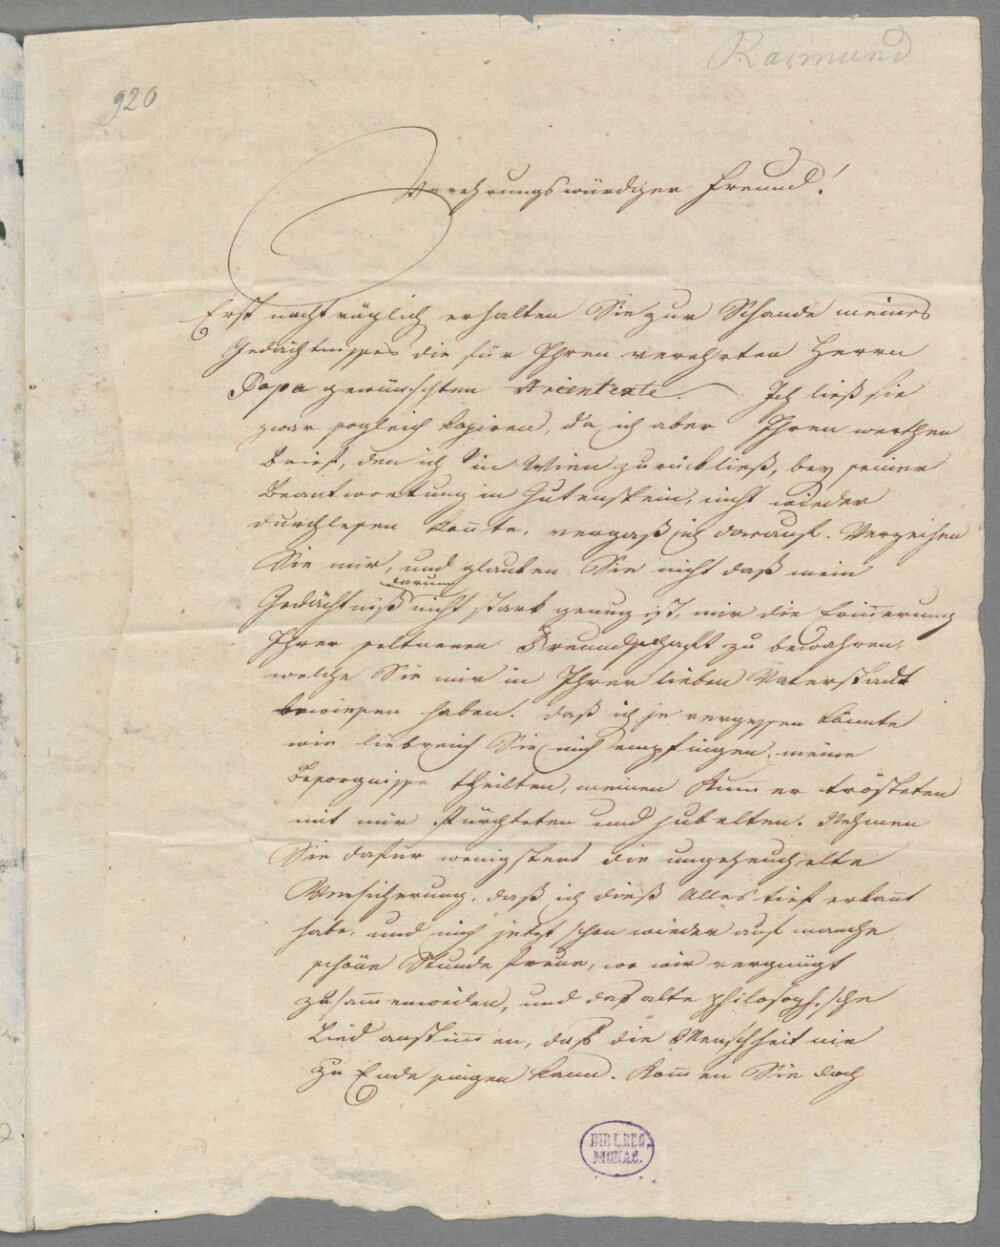 Raimund
920
Verehrungswürdiger Freund!
Erst nachträglich erhalten Sie zur Schande meines
Gedächtnisses die für Ihren verehrten Herrn
Papa gewünschten Arientexte. Ich ließ sie
zwar sogleich kopiren, da ich aber Ihren werthen
Brief, den ich in Wien zurückließ, bey seiner
Beantwortung in Gutenstein, nicht wieder
durchlesen konnte, vergaß ich darauf. Verzeihen
Sie mir, und glauben Sie nicht daß mein
darum
Gedächtniß nicht stark genug ist, mir die Erinnerung
Ihrer seltenen Freundschaft zu bewahren,
welche Sie mir in Ihrer lieben Vaterstadt
bewiesen haben. Daß ich je vergessen könnte
wie liebreich Sie mich empfingen, meine
Besorgnisse theilten, meinen Kummer trösteten
mit mir fürchteten und jubelten. Nehmen
Sie dafür wenigstens die ungeheuchelte
Versicherung, daß ich dieß Alles tief erkannt
habe, und mich jetzt schon wieder auf manche
schöne Stunde freue, wo wir vergnügt
zusammenweilen, und das alte philosophische
Lied anstimmen, daß die Menschheit nie
zu Ende singen kann. Kommen Sie doch
BIBL. REG.
MONAC.